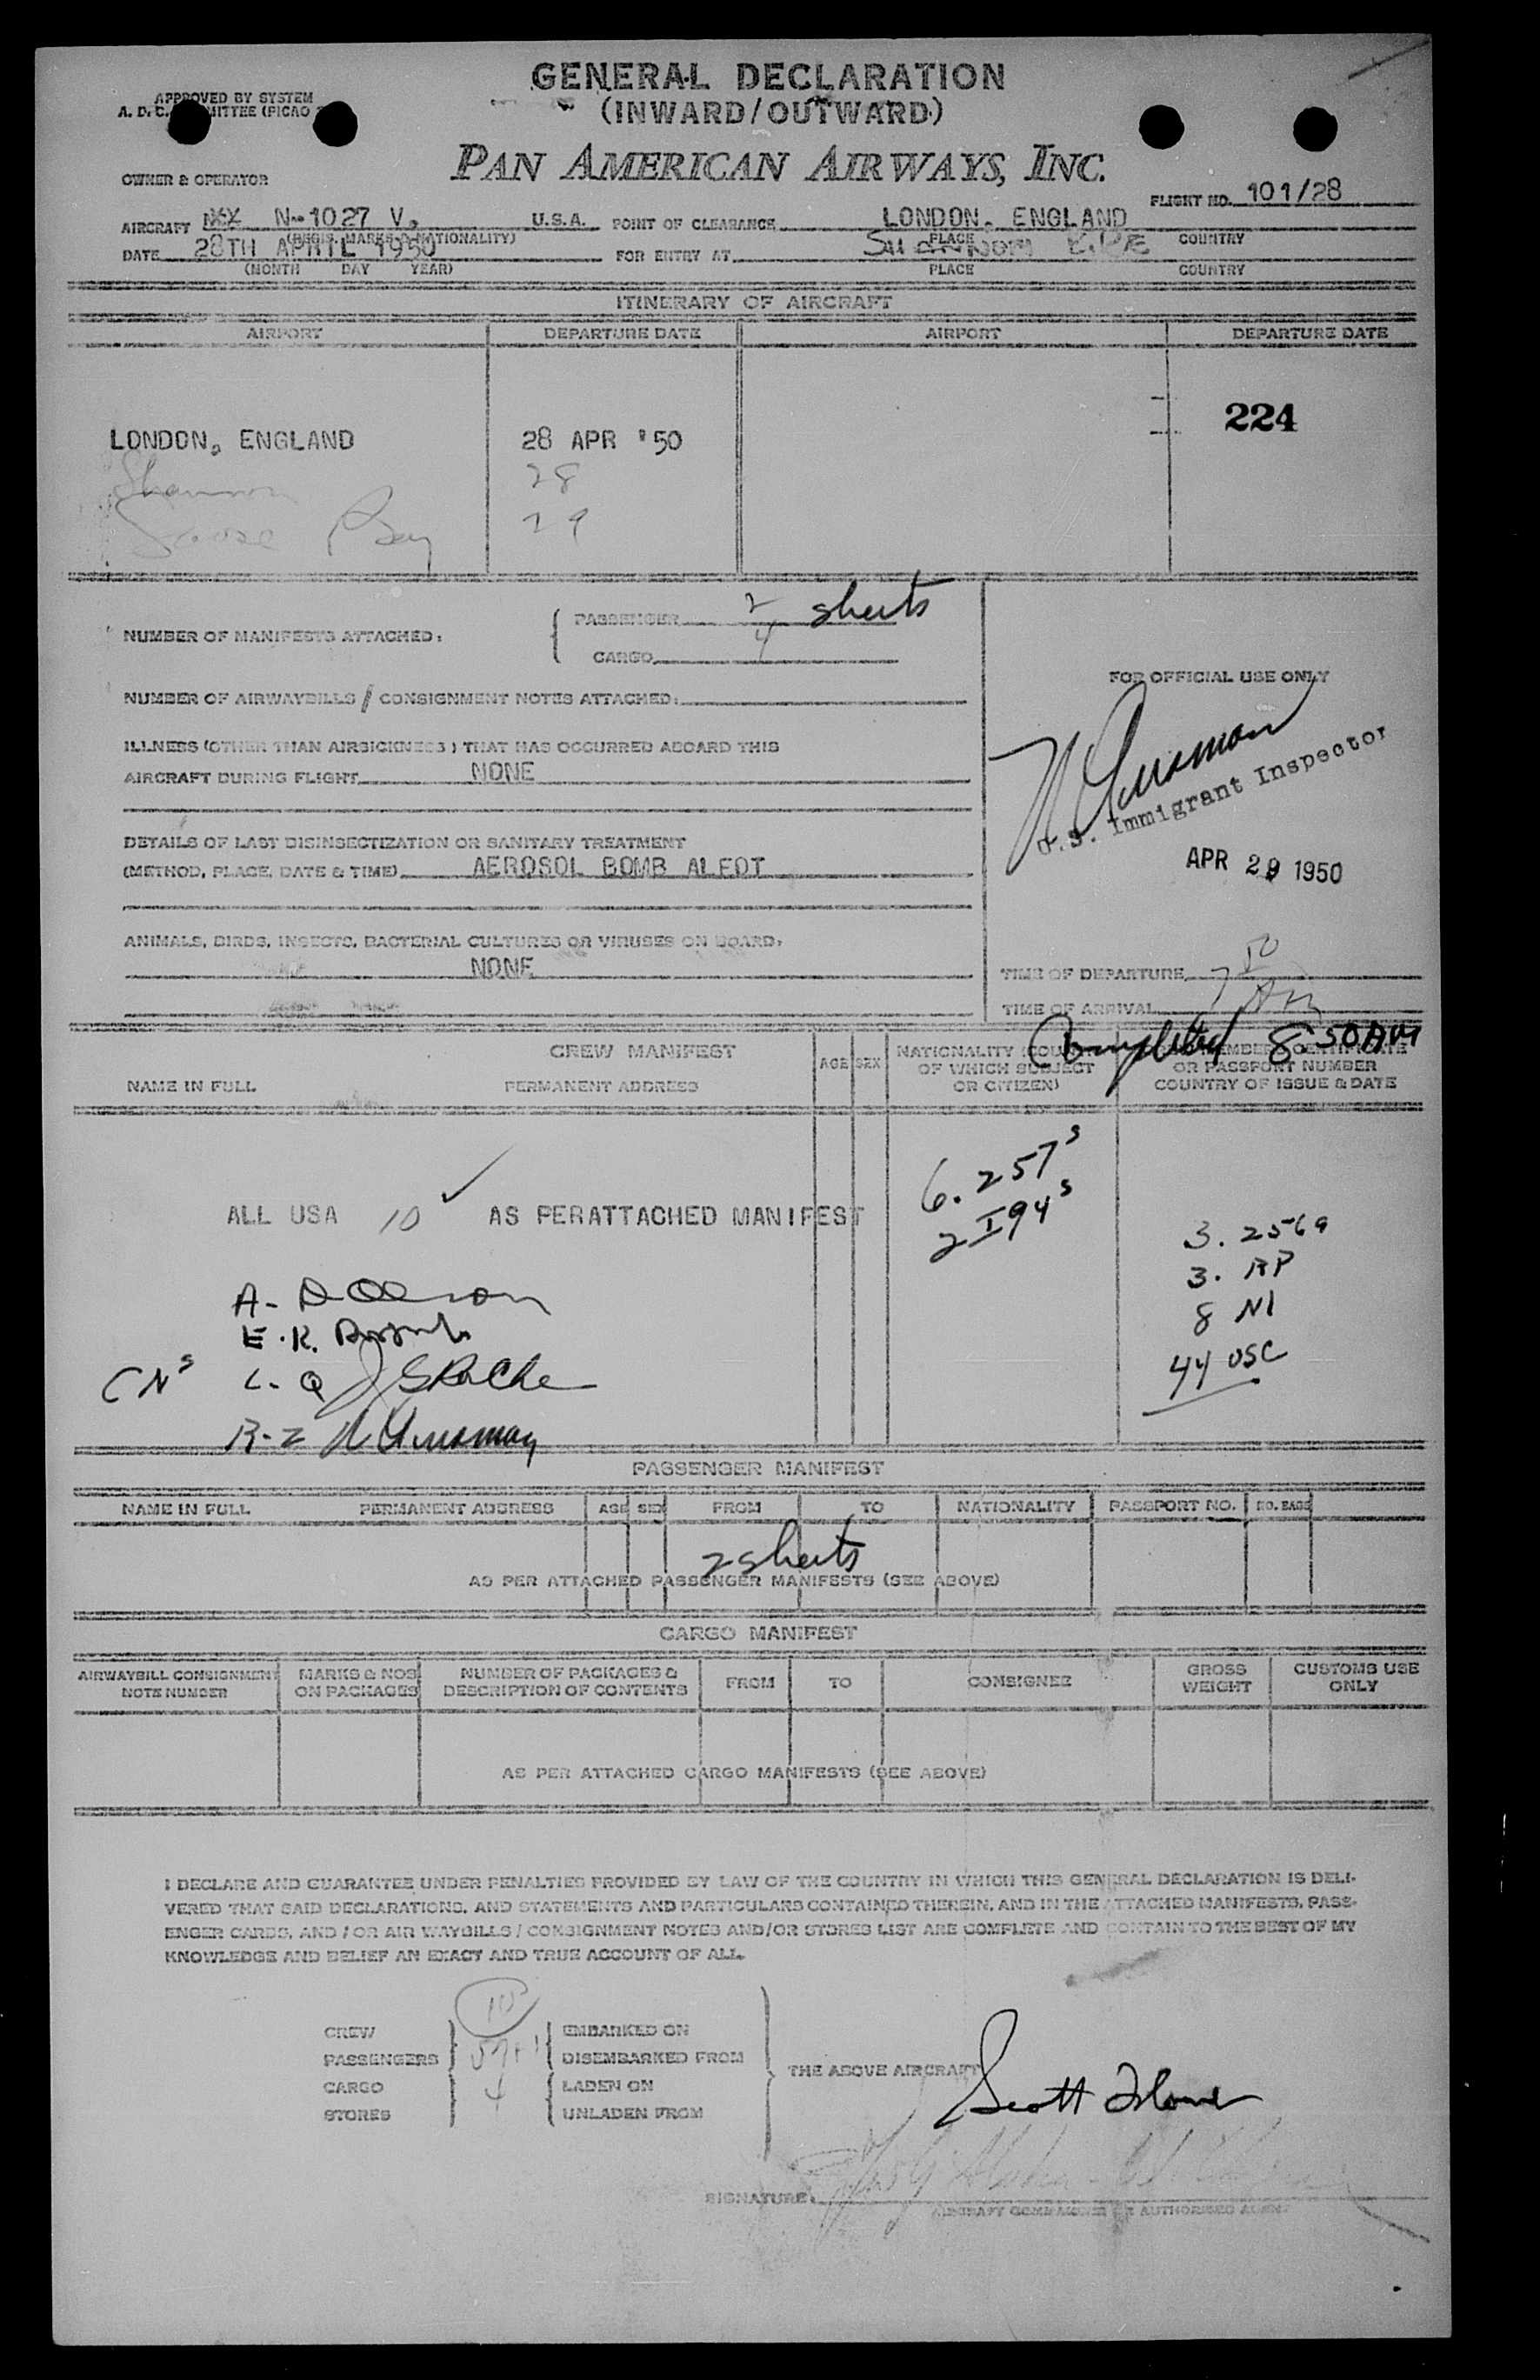 GENERAL DECLARATION
(INWARD/OUTWARD)
APPROVED BY SYSTEM
A. D. C. MITTEE (PICAO
PAN AMERICAN AIRWAYS, INC.
OWNER & OPERATOR
FLIGHT NO. 101/28
AIRCRAFT N-1027 V. U.S.A. POINT OF CLEARANCE LONDON, ENGLAND
(REGIS. MARKS & NATIONALITY) PLACE COUNTRY
DATE 28TH APRIL 1950 FOR ENTRY AT
(MONTH DAY YEAR) PLACE COUNTRY
ITINERARY OF AIRCRAFT
AIRPORT DEPARTURE DATE AIRPORT DEPARTURE DATE
224
LONDON, ENGLAND 28 APR '50
Shannon 28
Goose Bay 29
NUMBER OF MANIFESTS ATTACHED: PASSENGER 2 sheets
CARGO 4
FOR OFFICIAL USE ONLY
NUMBER OF AIRWAYBILLS / CONSIGNMENT NOTES ATTACHED:
ILLNESS (OTHER THAN AIRSICKNESS) THAT HAS OCCURRED ABOARD THIS
AIRCRAFT DURING FLIGHT NONE
U.S. Immigrant Inspector
DETAILS OF LAST DISINSECTIZATION OR SANITARY TREATMENT
(METHOD, PLACE, DATE & TIME) AEROSOL BOMB ALFDT
APR 29 1950
ANIMALS, BIRDS, INSECTS, BACTERIAL CULTURES OR VIRUSES ON BOARD:
NONE
TIME OF DEPARTURE 7 50
TIME OF ARRIVAL AM
Completed 8:50AM
CREW MANIFEST
NAME IN FULL PERMANENT ADDRESS AGE SEX NATIONALITY (COUNTRY OF WHICH SUBJECT OR CITIZEN) OR PASSPORT NUMBER COUNTRY OF ISSUE & DATE
6. 257s
2 I94s
ALL USA 10 ✓ AS PERATTACHED MANIFEST
3. 256a
3. RP
8 NI
44 USC
A-
E.K.
CNs L-Q
R-Z
PASSENGER MANIFEST
NAME IN FULL PERMANENT ADDRESS AGE SEX FROM TO NATIONALITY PASSPORT NO. NO. BAGS
2 sheets
AS PER ATTACHED PASSENGER MANIFESTS (SEE ABOVE)
CARGO MANIFEST
AIRWAYBILL CONSIGNMENT NOTE NUMBER MARKS & NOS ON PACKAGES NUMBER OF PACKAGES & DESCRIPTION OF CONTENTS FROM TO CONSIGNEE GROSS WEIGHT CUSTOMS USE ONLY
AS PER ATTACHED CARGO MANIFESTS (SEE ABOVE)
I DECLARE AND GUARANTEE UNDER PENALTIES PROVIDED BY LAW OF THE COUNTRY IN WHICH THIS GENERAL DECLARATION IS DELI-
VERED THAT SAID DECLARATIONS, AND STATEMENTS AND PARTICULARS CONTAINED THEREIN, AND IN THE ATTACHED MANIFESTS, PASS-
ENGER CARDS, AND / OR AIR WAYBILLS / CONSIGNMENT NOTES AND/OR STORES LIST ARE COMPLETE AND CONTAIN TO THE BEST OF MY
KNOWLEDGE AND BELIEF AN EXACT AND TRUE ACCOUNT OF ALL.
CREW 10 EMBARKED ON
PASSENGERS 57+1 DISEMBARKED FROM
CARGO 4 LADEN ON
STORES UNLADEN FROM
THE ABOVE AIRCRAFT
Scott
SIGNATURE:
AIRCRAFT COMMANDER OR AUTHORISED AGENT